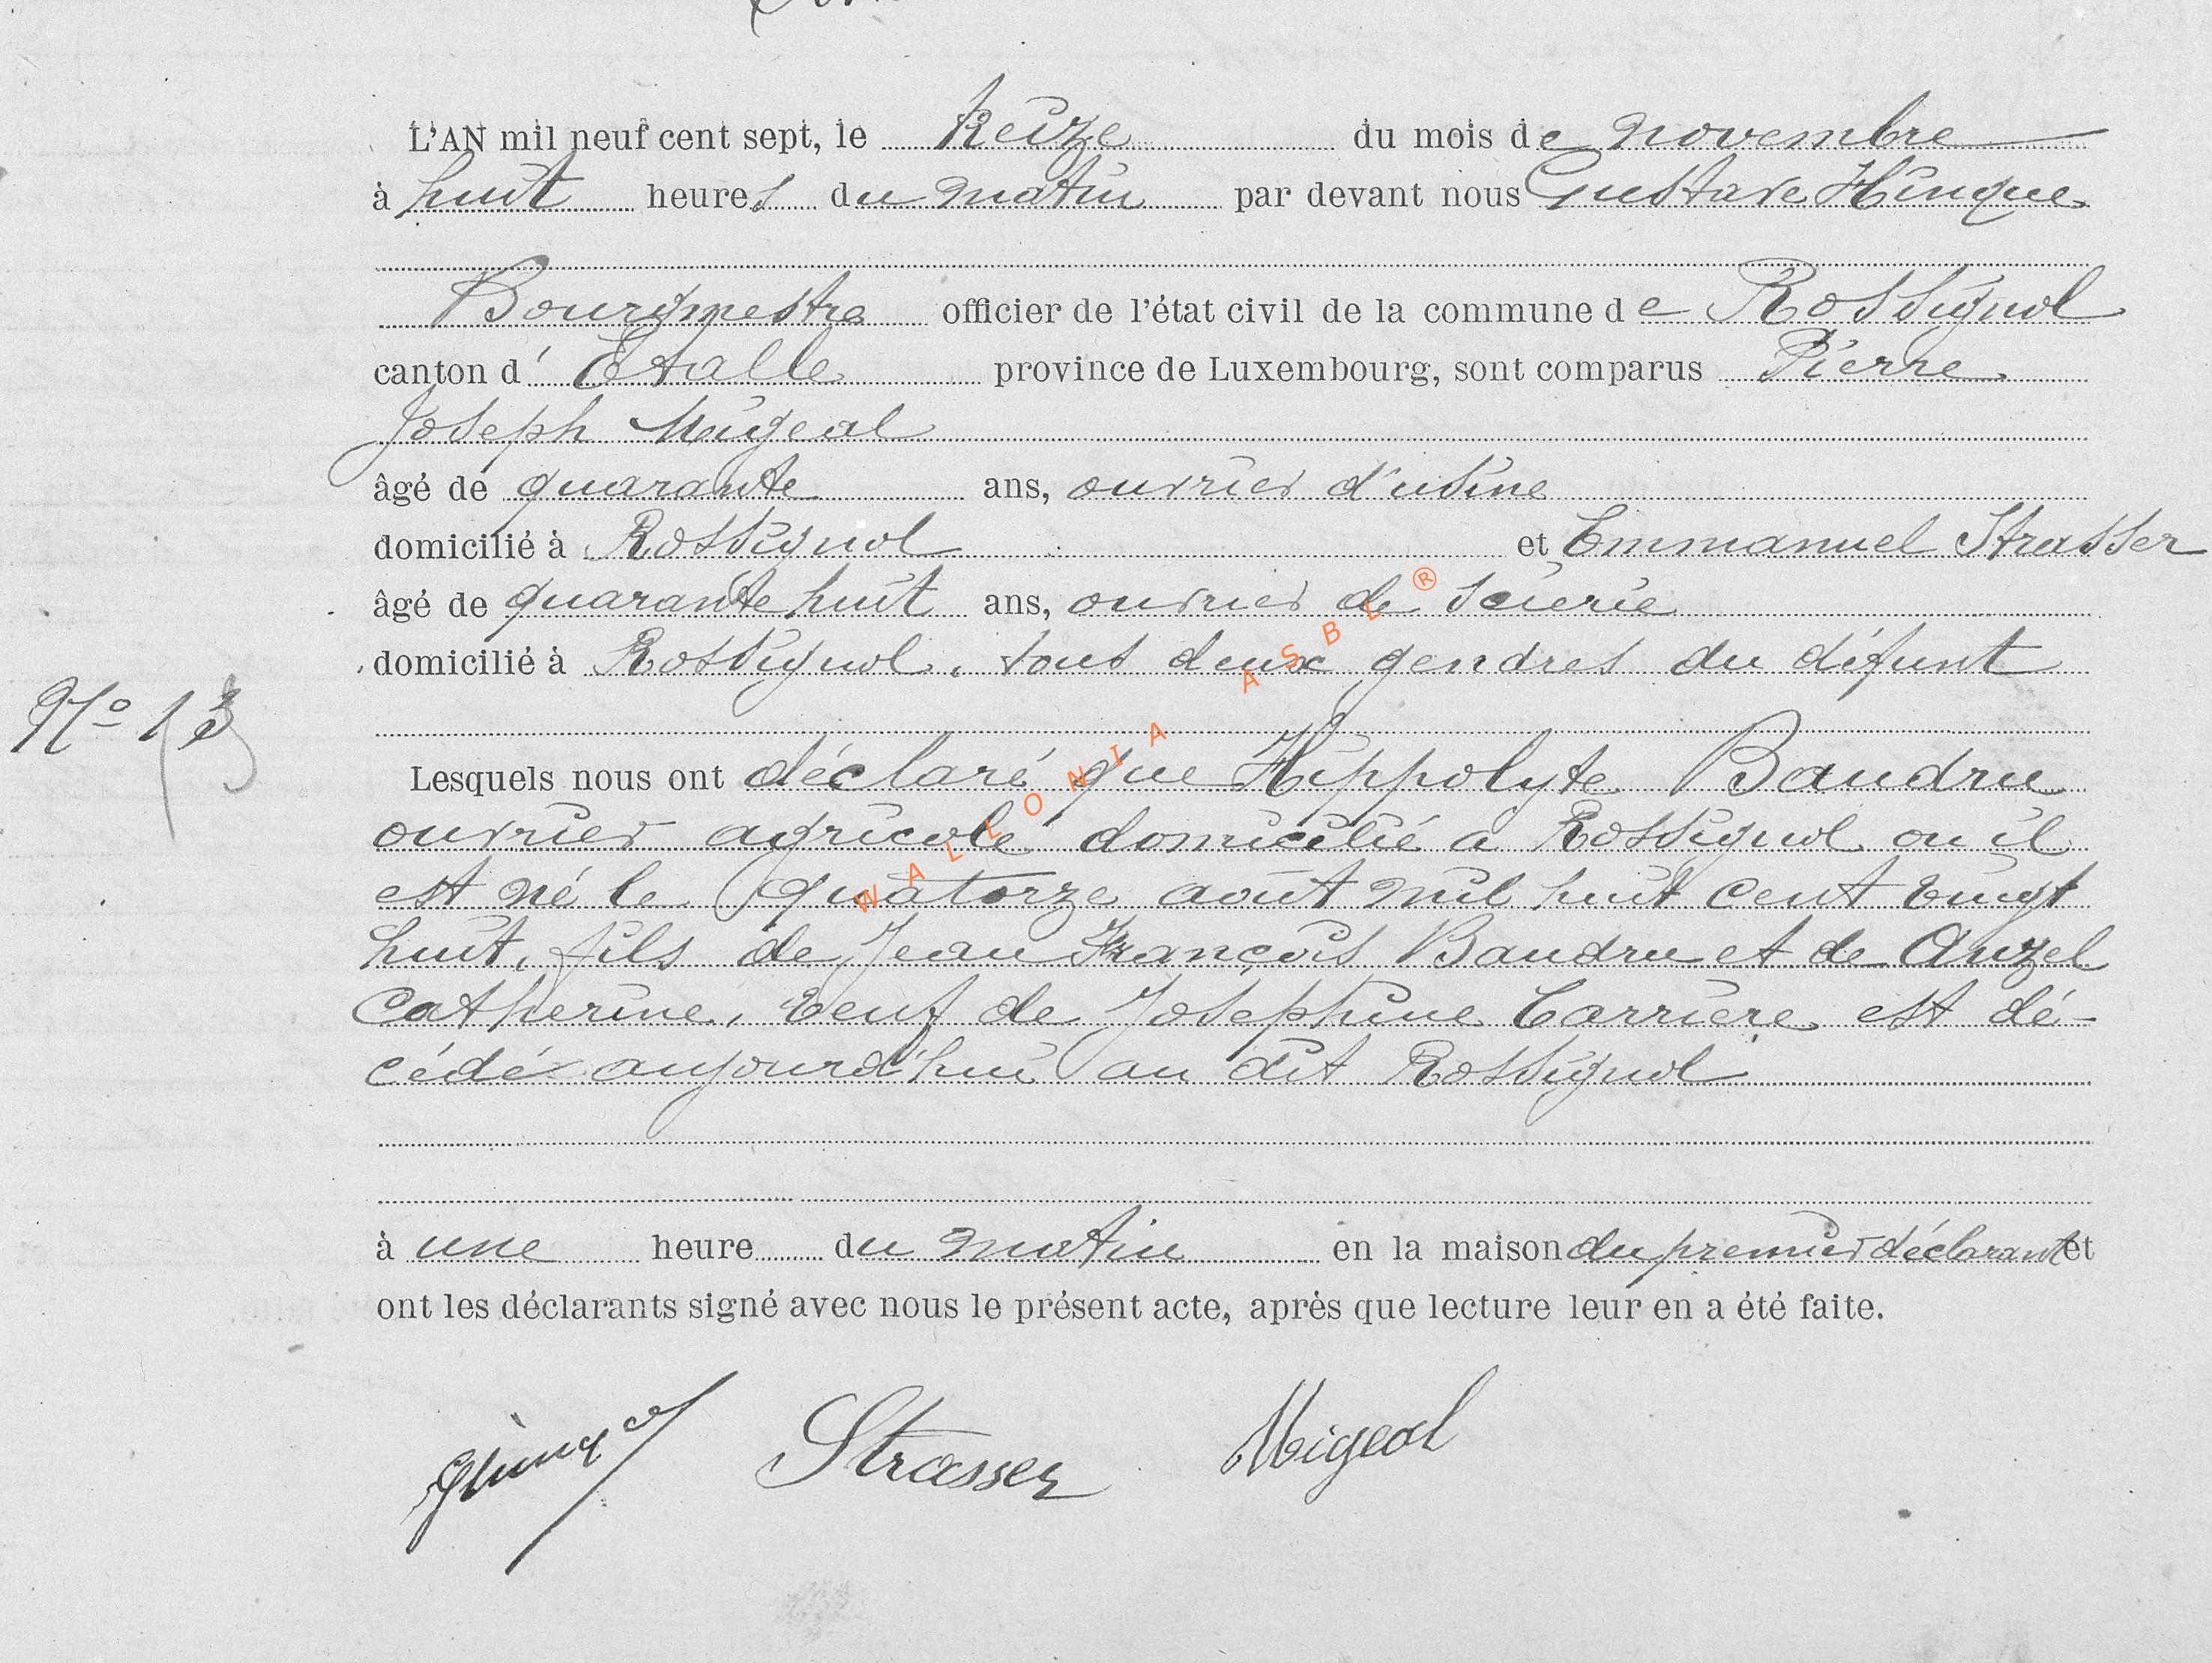 L'AN mil neuf cent sept, le treize du mois de novembre
à huit heures du matin par devant nous Gustave Hinque
Bourgmestre officier de l'état civil de la commune de Rossignol
canton d' Etalle province de Luxembourg, sont comparus Pierre
Joseph Migeal
âgé de quarante ans, ouvrier d'usine
domicilié à Rossignol et Emmanuel Strasser
âgé de quarante huit ans, ouvrier de scierie
domicilié à Rossignol, tous deux gendres du défunt
No 13
Lesquels nous ont déclaré que Hippolyte Baudru
ouvrier agricole domicilié à Rossignol où il
est né le quatorze août mil huit cent vingt
huit, fils de Jean François Baudru et de Anzel
Catherine, veuf de Josephine Carrière est dé-
cédé aujourd'hui au dit Rossignol
à une heure du matin en la maison du premier déclarant et
ont les déclarants signé avec nous le présent acte, après que lecture leur en a été faite.
GHinque Strasser Migeal
WALLONIA ASBL ®